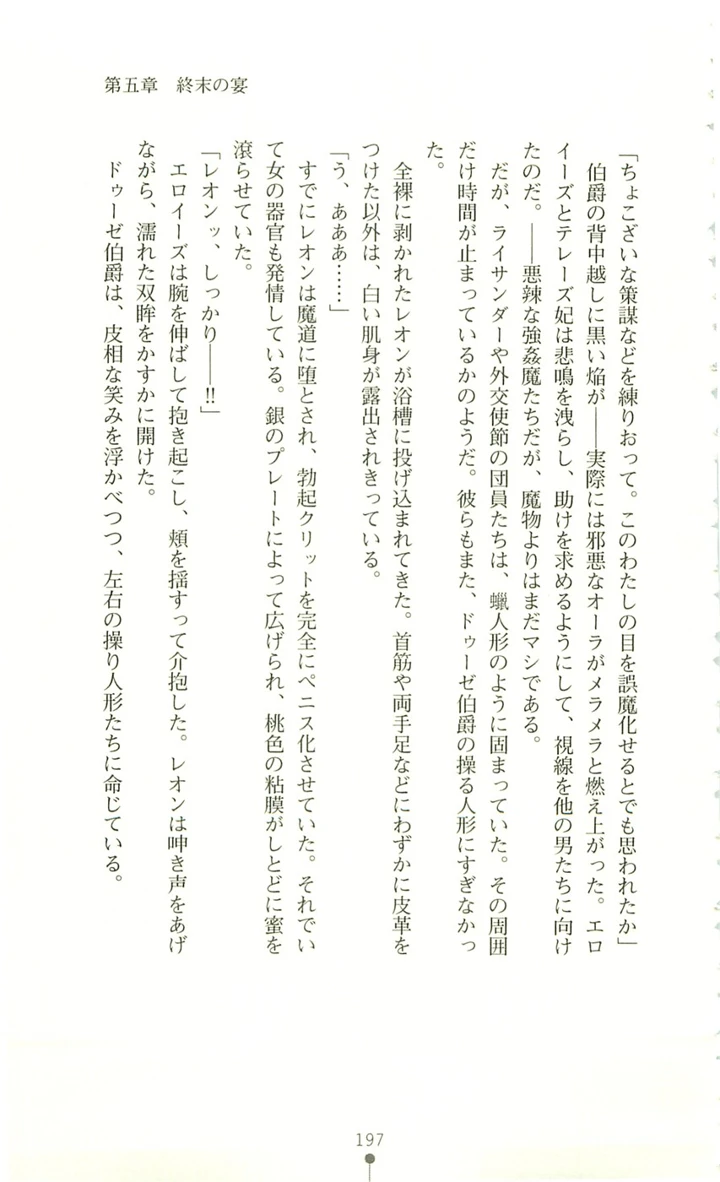 第五章　終末の宴
「ちょこざいな策謀などを練りおって。このわたしの目を誤魔化せるとでも思われたか」
伯爵の背中越しに黒い焔が――実際には邪悪なオーラがメラメラと燃え上がった。エロ
イーズとテレーズ妃は悲鳴を洩らし、助けを求めるようにして、視線を他の男たちに向け
たのだ。――悪辣な強姦魔たちだが、魔物よりはまだマシである。
だが、ライサンダーや外交使節の団員たちは、蠟人形のように固まっていた。その周囲
だけ時間が止まっているかのようだ。彼らもまた、ドゥーゼ伯爵の操る人形にすぎなかっ
た。
全裸に剥かれたレオンが浴槽に投げ込まれてきた。首筋や両手足などにわずかに皮革を
つけた以外は、白い肌身が露出されきっている。
「う、あああ……」
すでにレオンは魔道に堕とされ、勃起クリットを完全にペニス化させていた。それでい
て女の器官も発情している。銀のプレートによって広げられ、桃色の粘膜がしとどに蜜を
滾らせていた。
「レオンッ、しっかり――!!」
エロイーズは腕を伸ばして抱き起こし、頬を揺すって介抱した。レオンは呻き声をあげ
ながら、濡れた双眸をかすかに開けた。
ドゥーゼ伯爵は、皮相な笑みを浮かべつつ、左右の操り人形たちに命じている。
197